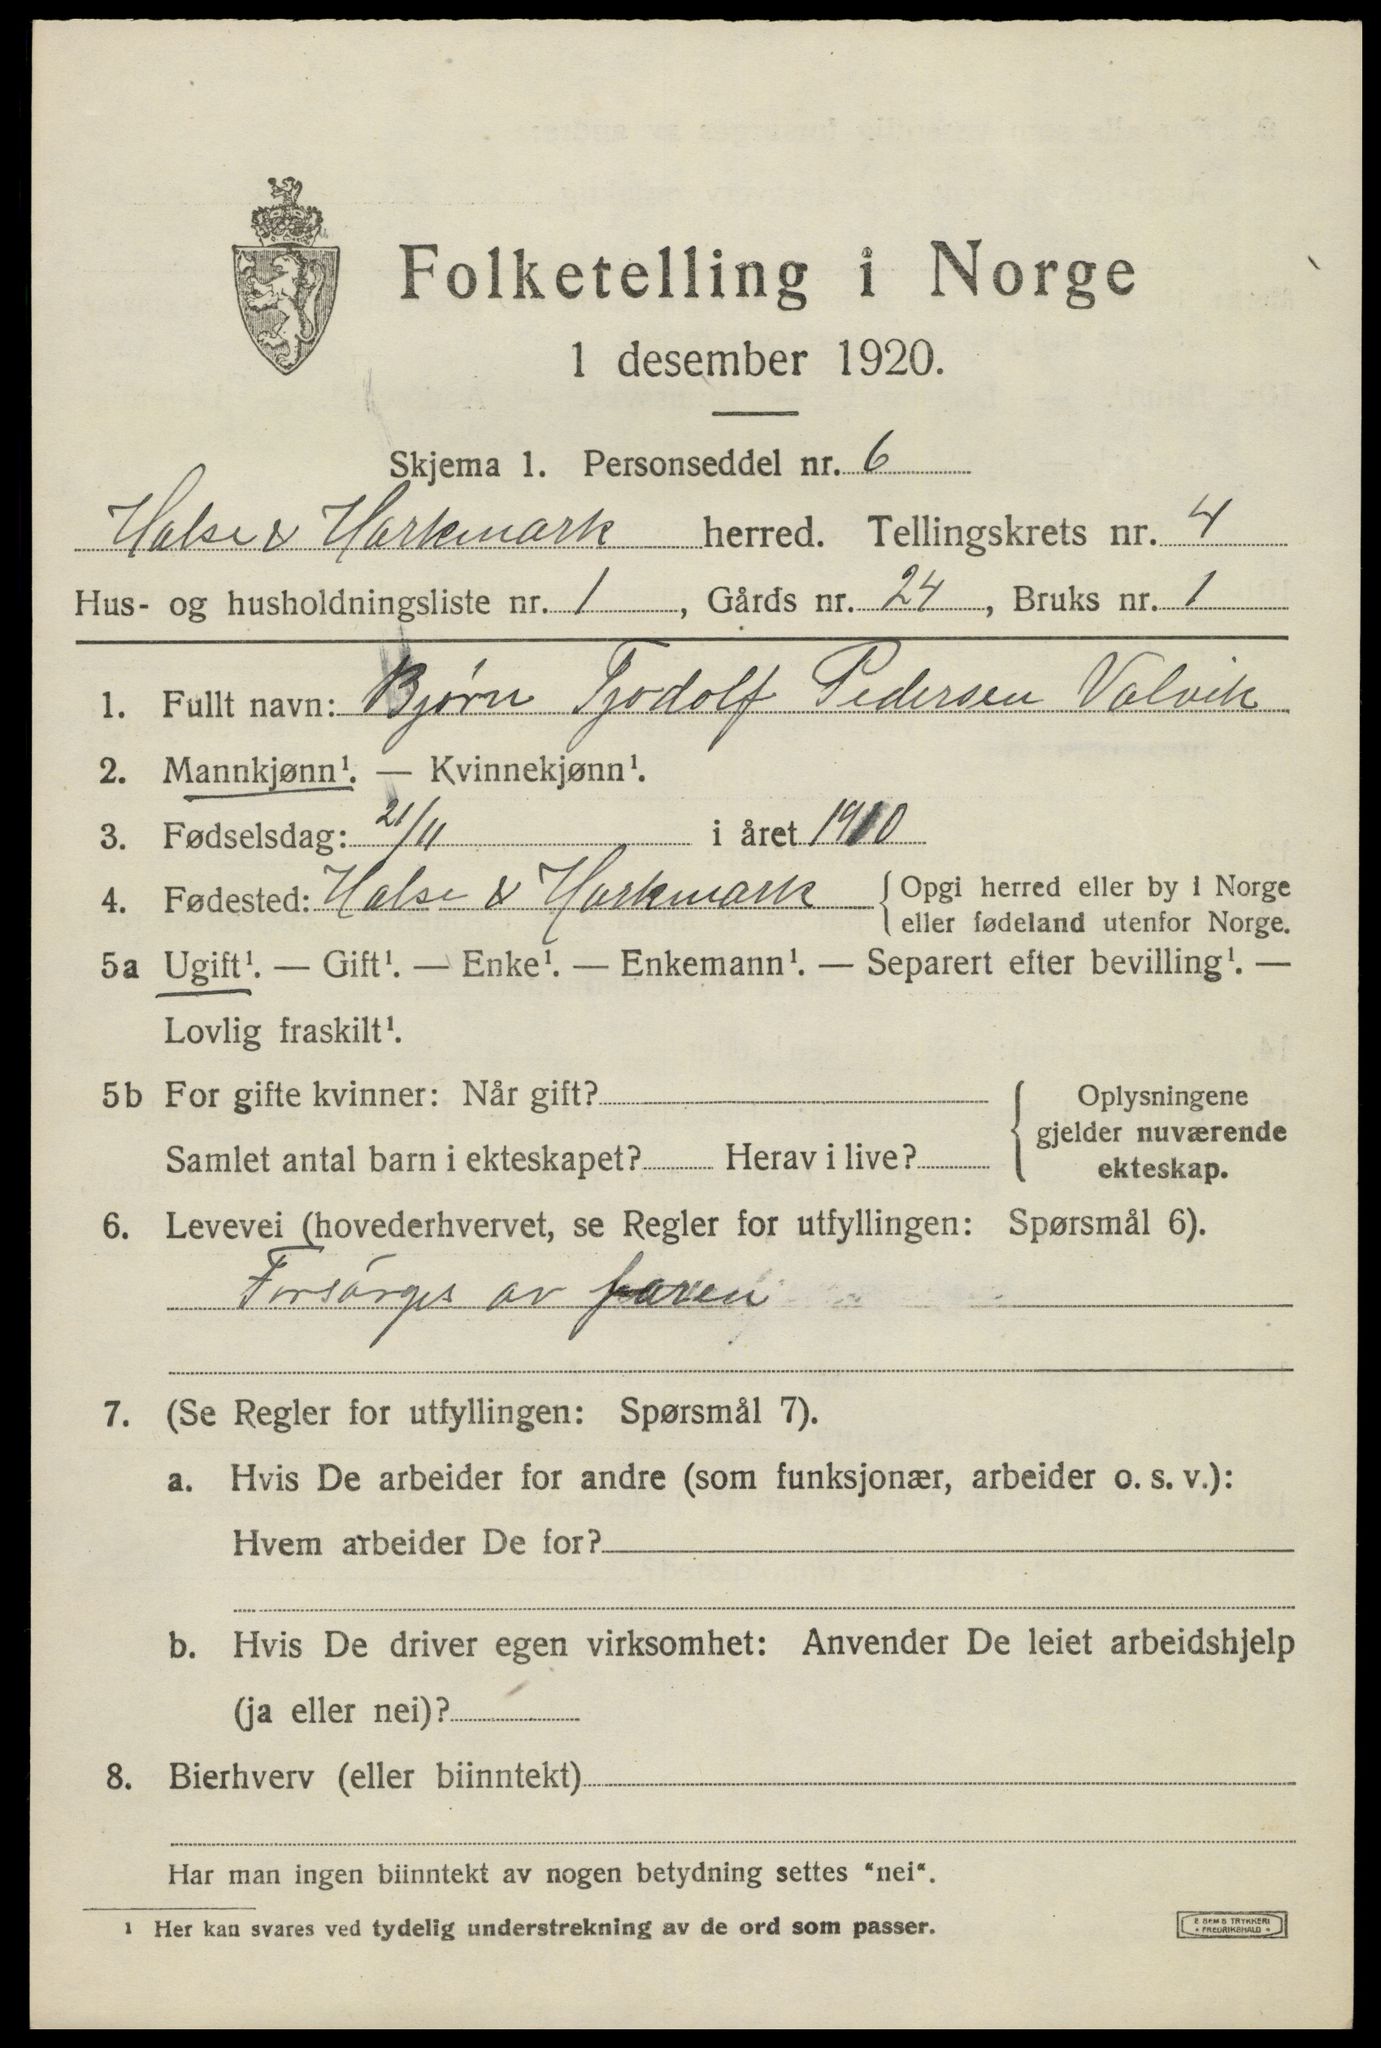 Folketelling i Norge
1 desember 1920.
Skjema 1. Personseddel nr. 6
Halse & Harkmark herred. Tellingskrets nr. 4
Hus- og husholdningsliste nr. 1, Gårds nr. 24, Bruks nr. 1
1. Fullt navn: Bjørn Tjodolf Pedersen Valvik
2. Mannkjønn¹. — Kvinnekjønn¹.
3. Fødselsdag: 21/11 i året 1910
4. Fødested: Halse & Harkmark { Opgi herred eller by i Norge
eller fødeland utenfor Norge.
5a Ugift¹. — Gift¹. — Enke¹. — Enkemann¹. — Separert efter bevilling¹. —
Lovlig fraskilt¹.
5b For gifte kvinner: Når gift? { Oplysningene
gjelder nuværende
Samlet antal barn i ekteskapet? Herav i live? ekteskap.
6. Levevei (hovederhvervet, se Regler for utfyllingen: Spørsmål 6).
Forsørges av faren
7. (Se Regler for utfyllingen: Spørsmål 7).
a. Hvis De arbeider for andre (som funksjonær, arbeider o. s. v.):
Hvem arbeider De for?
b. Hvis De driver egen virksomhet: Anvender De leiet arbeidshjelp
(ja eller nei)?
8. Bierhverv (eller biinntekt)
Har man ingen biinntekt av nogen betydning settes "nei".
¹ Her kan svares ved tydelig understrekning av de ord som passer.
E. SEM S TRYKKERI
• FREDRIKSHALD •